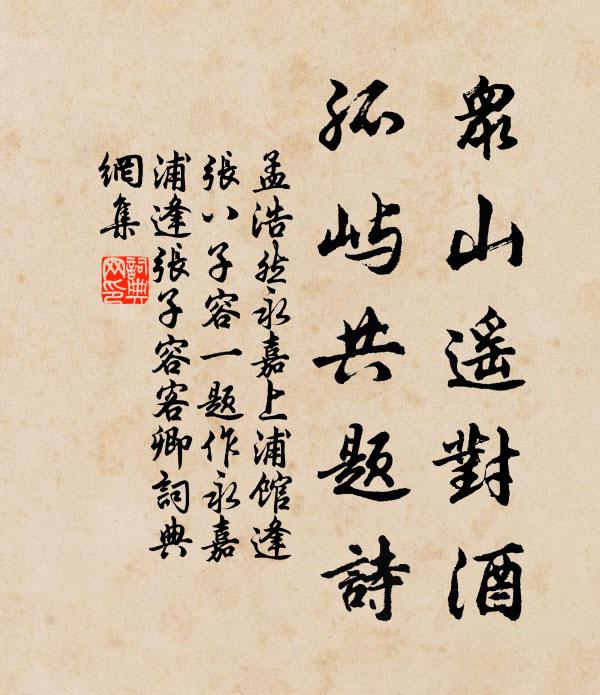 眾山遥對酒
孤屿共题詩
孟浩然永嘉上浦馆逢
張八子容一题作永嘉
浦逢張子容客卿詞典
網集
詞典
网印